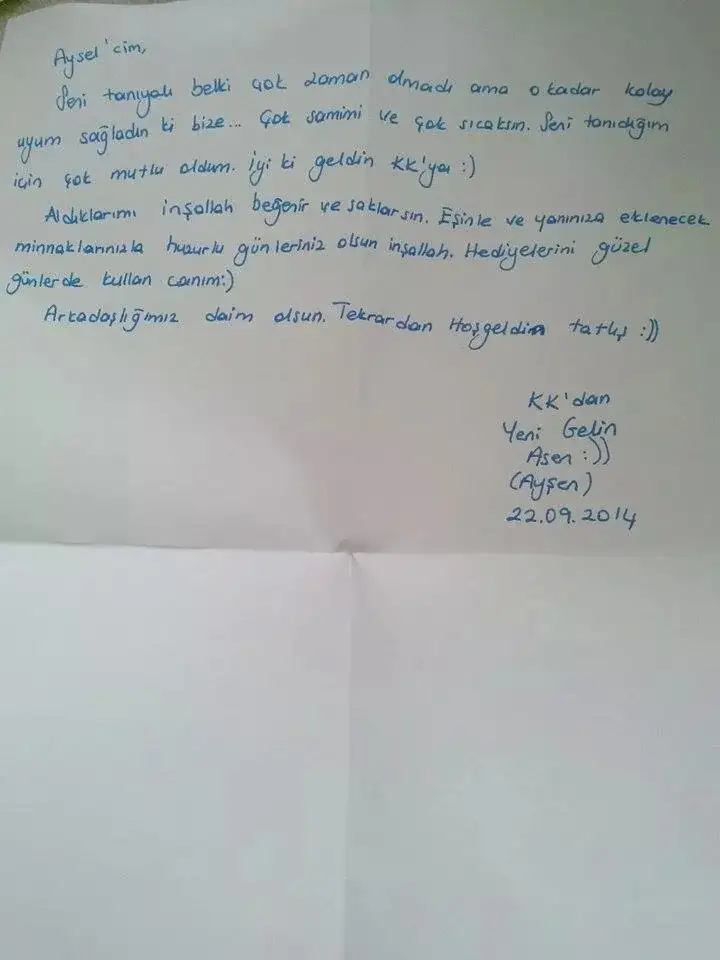 Aysel'cim,
Seni tanıyalı belki çok zaman olmadı ama o kadar kolay
uyum sağladın ki bize... Çok samimi ve çok sıcaksın. Seni tanıdığım
için çok mutlu oldum. İyi ki geldin KK'ya :)
Aldıklarımı inşallah beğenir ve saklarsın. Eşinle ve yanınıza eklenecek
minnaklarınızla huzurlu günleriniz olsun inşallah. Hediyelerini güzel
günlerde kullan canım:)
Arkadaşlığımız daim olsun. Tekrardan Hoşgeldin tatlış :))
KK'dan
Yeni Gelin
Asen :))
(Ayşen)
22.09.2014